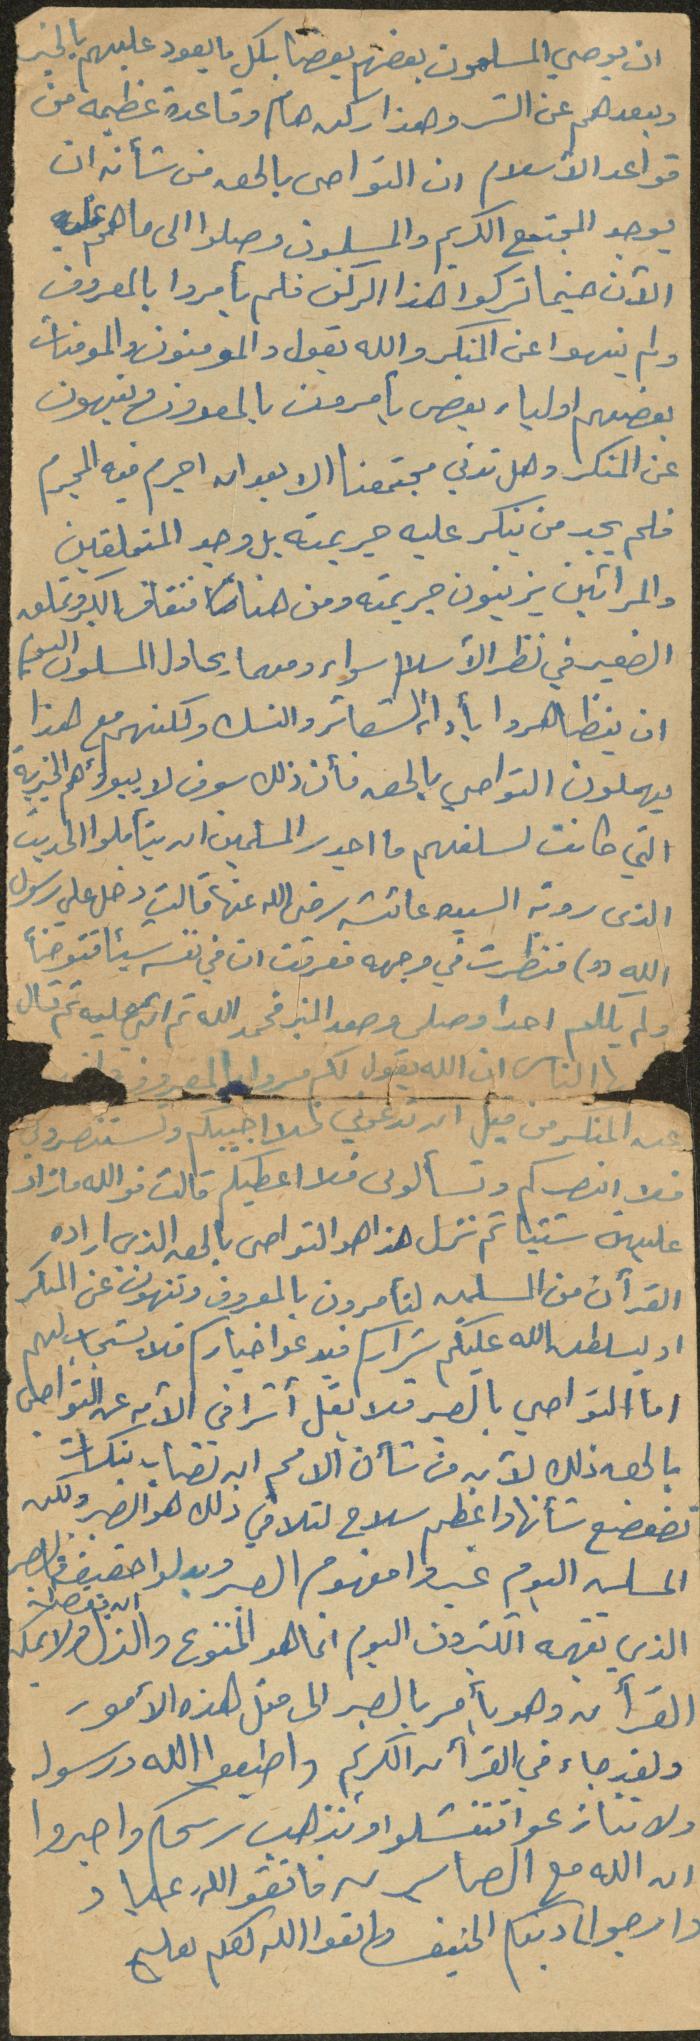 ان يوصي المسلمون بعضهم بعضا بكل ما يعود عليهم بالخير
ويبعدهم عن الشر وهذا ركن هام وقاعدة عظيمه من
قواعد الأسلام ان التواصي بالحق من شأنه ان
يوجد المجتمع الكريم والمسلمون وصلوا الى ما هم عليه
الآن حينما تركوا هذا الركن فلم يأمروا بالمعروف
ولم ينهوا عن المنكر والله يقول والمومنون والمومنات
بعضهم اولياء بعض يأمرون بالمعروف وينهون
عن المنكر وهل تدني مجتمعنا الا بعد ان اجرم فيه المجرم
فلم يجد من ينكر عليه جريمته بل وجد المتملقين
والمرائين يزينون جريمته ومن هنا كان نفاق الكبر وتملق
الصغير في نظر الأسلام سواء ومهما يحاول المسلمون اليوم
ان يتظاهروا بأداء الشعائر والنسك ولكنهم مع هذا
يهملون التواصي بالحق فأن ذلك سوف لا يبوؤهم الخيرية
التي كانت لسلفهم ما اجدر المسلمين ان يتأملوا الحديث
الذى روته السيده عائشه رضي الله عنها قالت دخل علي رسول
الله (ص) فنظرت في وجهه فعرفت ان في نفسه شيئا فتوضأ
ولم يكلم احدا وصلى وصعد المنبر فحمد الله ثم اثنى عليه ثم قال
ها الناس ان الله يقول لكم مروا بالمعروف وانهوا
عن المنكر من قبل ان تدعوني فلا اجيبكم وتستنصروني
فلا انصركم وتسألوني فلا اعطيكم قالت فوالله ما زاد
عليهن شيئا ثم نزل هذا هو التواصي بالحق الذي اراده
القرآن من المسلمين لتأمرون بالمعروف وتنهون عن المنكر
او ليسلطن الله عليكم شراركم فيدعوا خياركم فلا يستجاب لهم
اما التواصي بالصبر فلا يقل أثرا في الأمه عن التواصي
بالحق ذلك لأنه من شأن الأمم ان تصاب بنكبات
تضعضع شأنها واعظم سلاح لتلافي ذلك هو الصبر ولكن
المسلمين اليوم غيروا مفهوم الصبر وبدلوا حقيقته فالصبر
الذي يفهمه الكثيرون اليوم انما هو الخنوع والذل ولا يمكن ان يقصد
القرآن وهو يأمر بالصبر الى مثل هذه الأمور
ولقد جاء في القرآن الكريم واطيعوا الله ورسوله
ولا تنازعوا فتفشلوا وتذهب ريحكم واصبروا
ان الله مع الصابرين فاتقوا الله عباد
وارجعوا لدينكم الحنيف واتقوا الله لعلكم